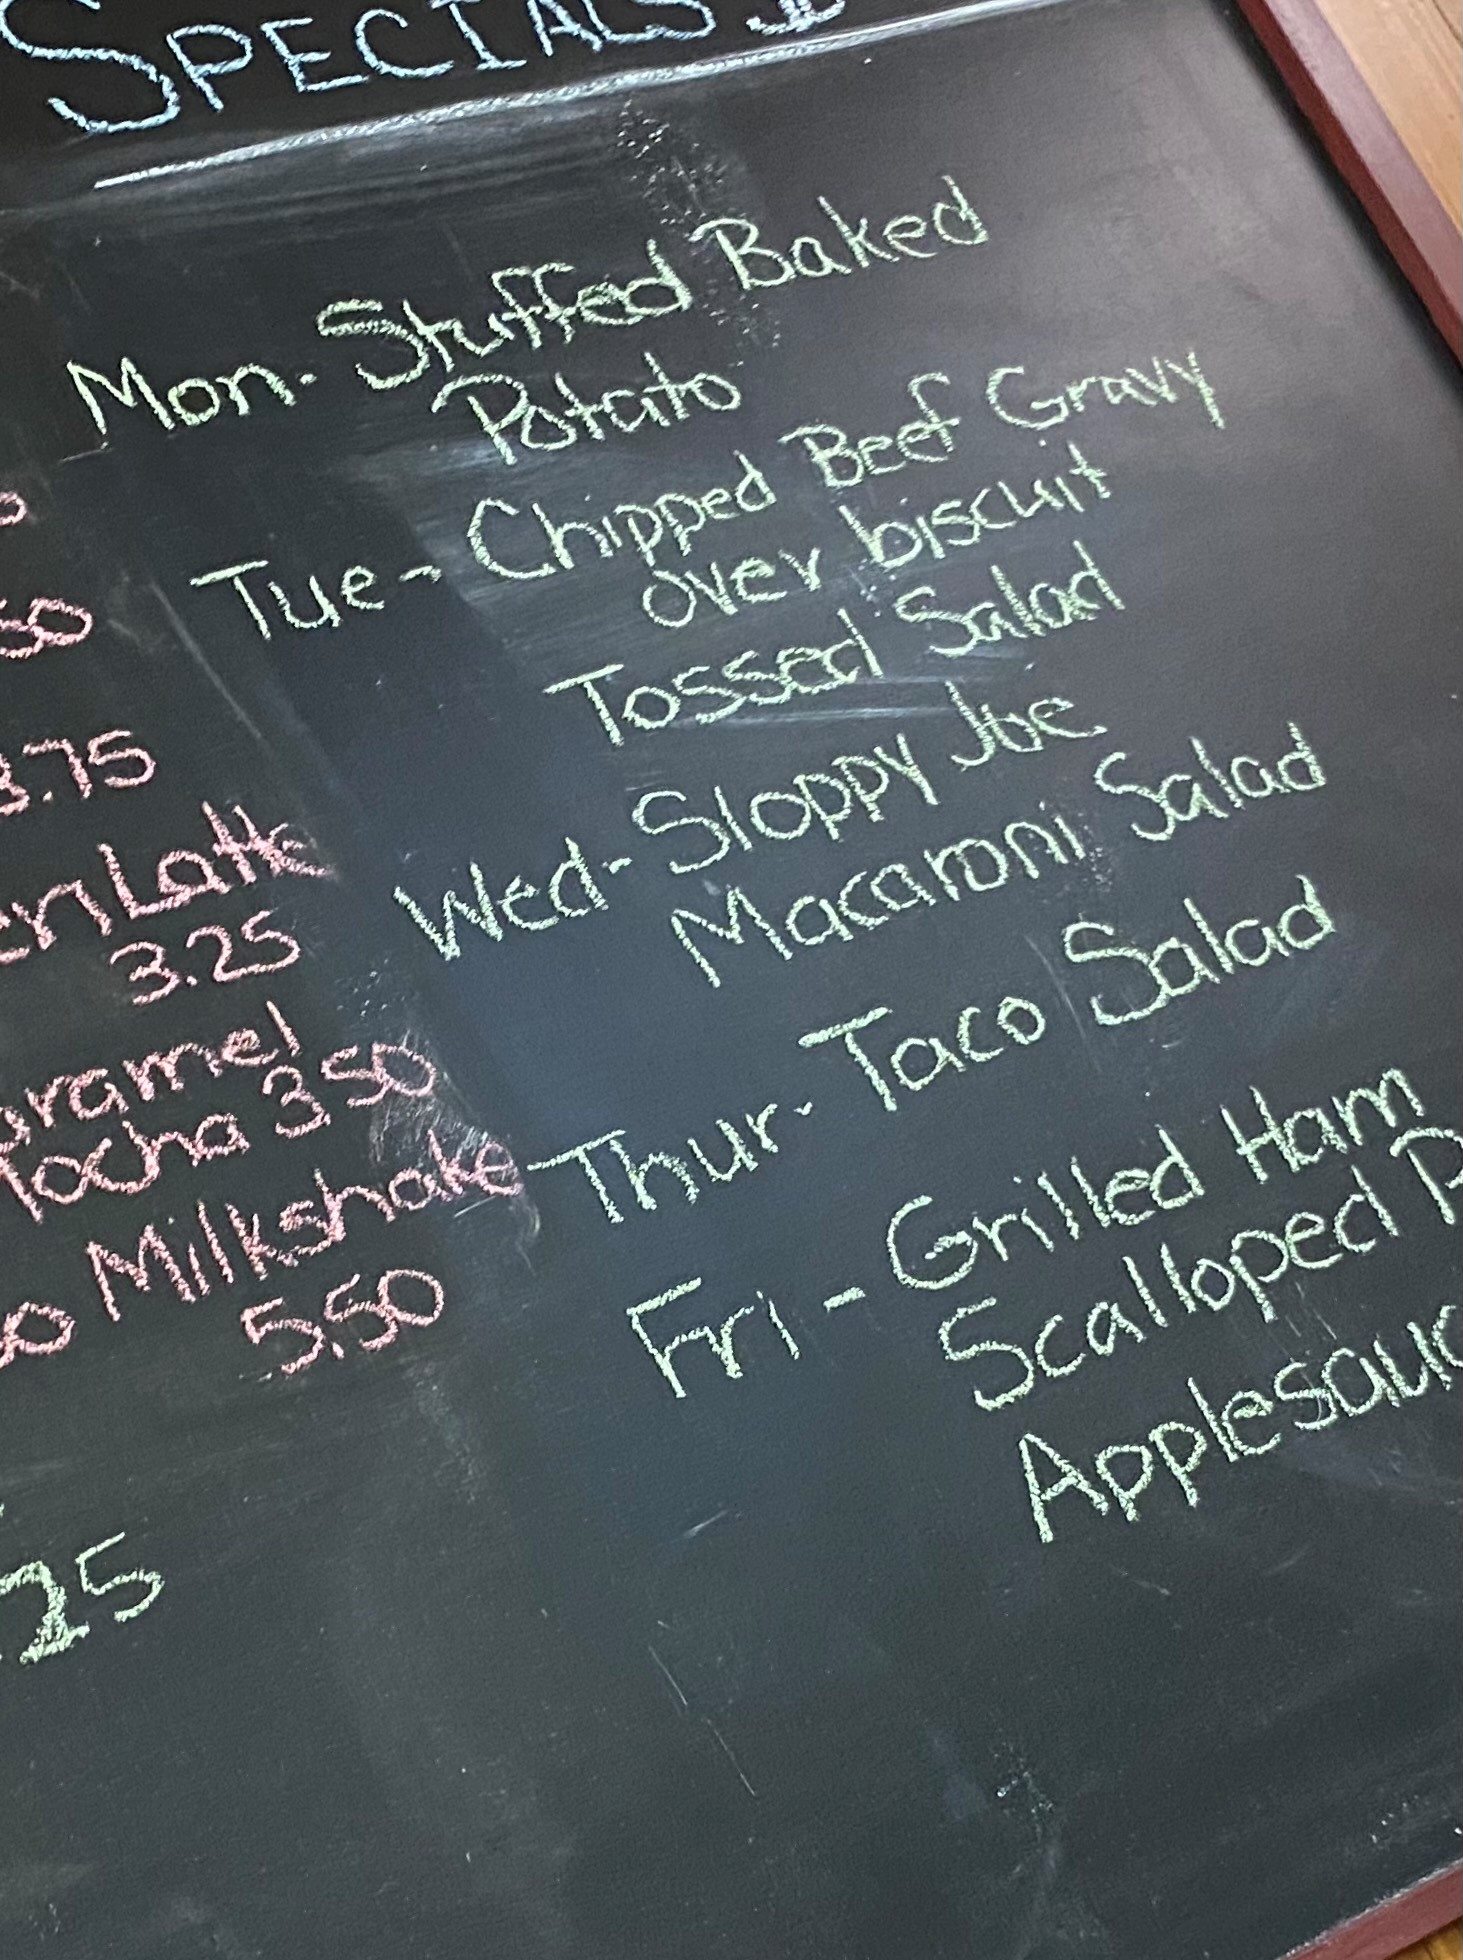 SPECIALS
Mon. Stuffed Baked
Potato
Tue - Chipped Beef Gravy
over biscuit
Tossed Salad
Wed- Sloppy Joe
Macaroni Salad
Thur. Taco Salad
Fri - Grilled Ham
Scalloped P
Applesauc
50
3.75
Latte
3.25
aramel
ocha 3.50
Milkshake
5.50
25